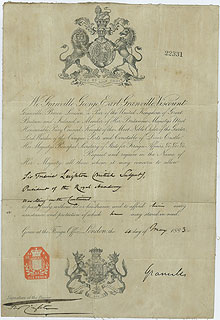 22331
We Granville George Earl Granville Viscount
Granville Baron Leveson a Peer of the United Kingdom of Great
Britain and Ireland, a Member of Her Britannic Majesty's Most
Honorable Privy Council, Knight of the Most Noble Order of the Garter,
Lord Warden of the Cinque Ports and Constable of Dover Castle,
Her Majesty's Principal Secretary of State for Foreign Affairs &c. &c. &c.
Request and require in the Name of
Her Majesty, all those whom it may concern to allow
Sir Leighton British Subject
President of the Royal Academy
travelling on the Continent
to pass freely without let or hindrance and to afford him every
assistance and protection of which he may stand in need.
Given at the Foreign Office, London, the day of May 1883
Granville